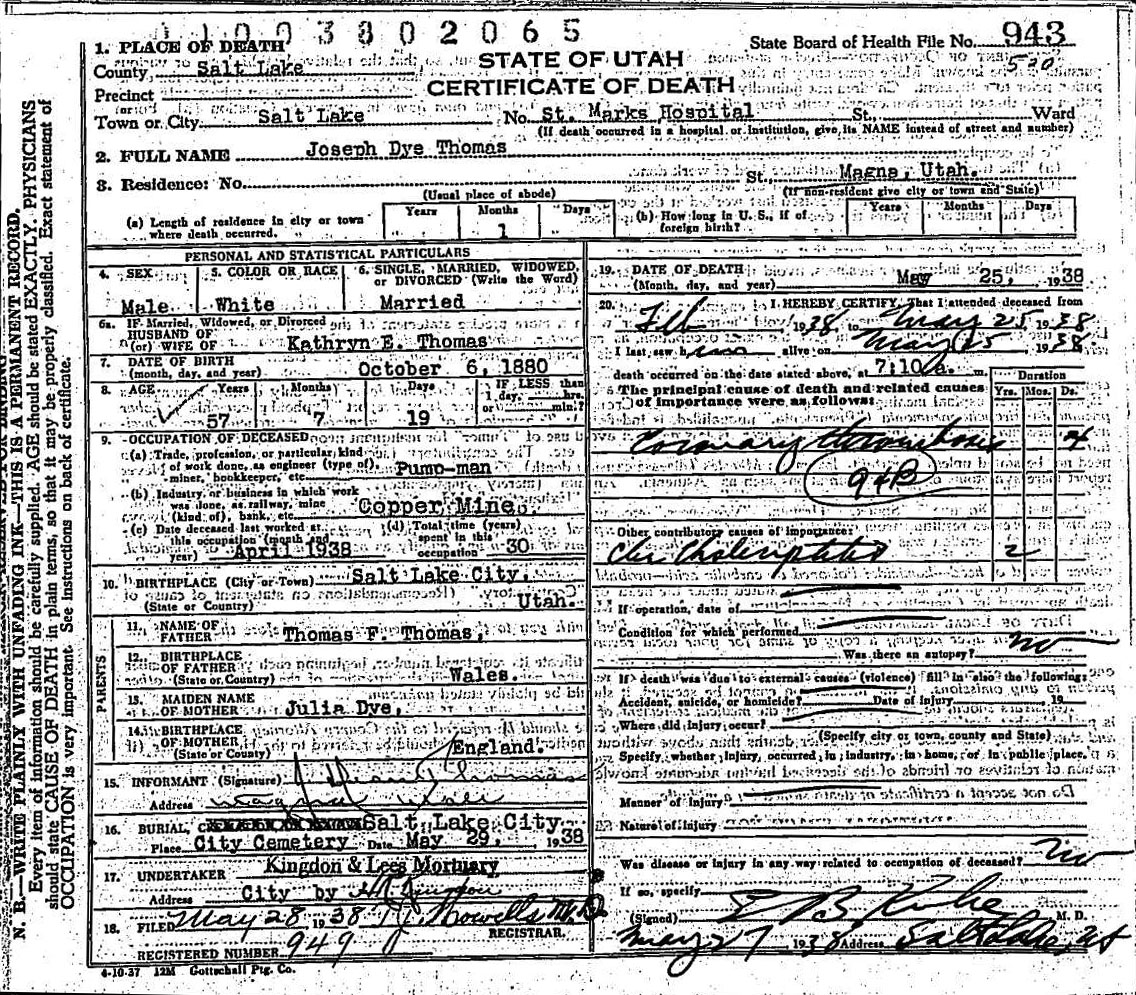 1 1 0 0 3 3 0 2 0 6 5
State Board of Health File No. 943
520
1. PLACE OF DEATH
STATE OF UTAH
County Salt Lake
CERTIFICATE OF DEATH
Precinct
(or)
Town or City Salt Lake No. St. Marks Hospital St., Ward
(If death occurred in a hospital or institution, give its NAME instead of street and number)
2. FULL NAME Joseph Dye Thomas
3. Residence: No. St. Magna, Utah.
(Usual place of abode) (If non-resident give city or town and State)
(a) Length of residence in city or town where death occurred. Years Months 1 Days
(b) How long in U. S., if of foreign birth? Years Months Days
PERSONAL AND STATISTICAL PARTICULARS
4. SEX 5. COLOR OR RACE 6. SINGLE, MARRIED, WIDOWED, OR DIVORCED (Write the Word)
Male White Married
6a. IF Married, Widowed, or Divorced
HUSBAND OF
(or) WIFE OF Kathryn E. Thomas
7. DATE OF BIRTH
(month, day, and year) October 6, 1880
8. AGE Years Months Days IF LESS than
1 day, hrs.
or min.?
57 7 19
9. OCCUPATION OF DECEASED
(a) Trade, profession, or particular kind
of work done, as engineer (type of),
miner, bookkeeper, etc. Pump-man
(b) Industry or business in which work
was done, as railway, mine
(kind of), bank, etc. Copper Mine.
(c) Date deceased last worked at
this occupation (month and
year) April 1938
(d) Total time (years)
spent in this
occupation 30
10. BIRTHPLACE (City or Town) Salt Lake City.
(State or Country) Utah.
PARENTS
11. NAME OF
FATHER Thomas F. Thomas,
12. BIRTHPLACE
OF FATHER
(State or Country) Wales.
13. MAIDEN NAME
OF MOTHER Julia Dye,
14. BIRTHPLACE
OF MOTHER
(State or Country) England.
15. INFORMANT (Signature) Thomas
Address Magna Utah
16. BURIAL, Salt Lake City
Place City Cemetery Date May 29, 1938
17. UNDERTAKER Kingdon & Lees Mortuary
Address City by
18. FILED May 28 1938 M.D.
REGISTRAR.
REGISTERED NUMBER 949
4-10-37 12M Gottschall Ptg. Co.
19. DATE OF DEATH
(Month, day, and year) May 25, 1938
20. I HEREBY CERTIFY, That I attended deceased from
Feb 1938 to May 25 1938
I last saw him alive on May 25 1938
death occurred on the date stated above, at 7:10 a. m.
The principal cause of death and related causes
of importance were as follows:
Duration
Yrs. Mos. Ds.
Coronary thrombosis 4
94B
Other contributory causes of importance:
2
If operation, date of
Condition for which performed
Was there an autopsy? no
If death was due to external causes (violence) fill in also the following:
Accident, suicide, or homicide? Date of injury 19
Where did injury occur?
(Specify city or town, county and State)
Specify whether injury occurred in industry, in home, or in public place.
Manner of injury
Nature of injury
Was disease or injury in any way related to occupation of deceased? no
If so, specify
(Signed) M. D.
May 27 1938 Address Salt Lake, Ut
N. B.—WRITE PLAINLY WITH UNFADING INK—THIS IS A PERMANENT RECORD.
Every item of information should be carefully supplied. AGE should be stated EXACTLY. PHYSICIANS
should state CAUSE OF DEATH in plain terms, so that it may be properly classified. Exact statement of
OCCUPATION is very important. See instructions on back of certificate.